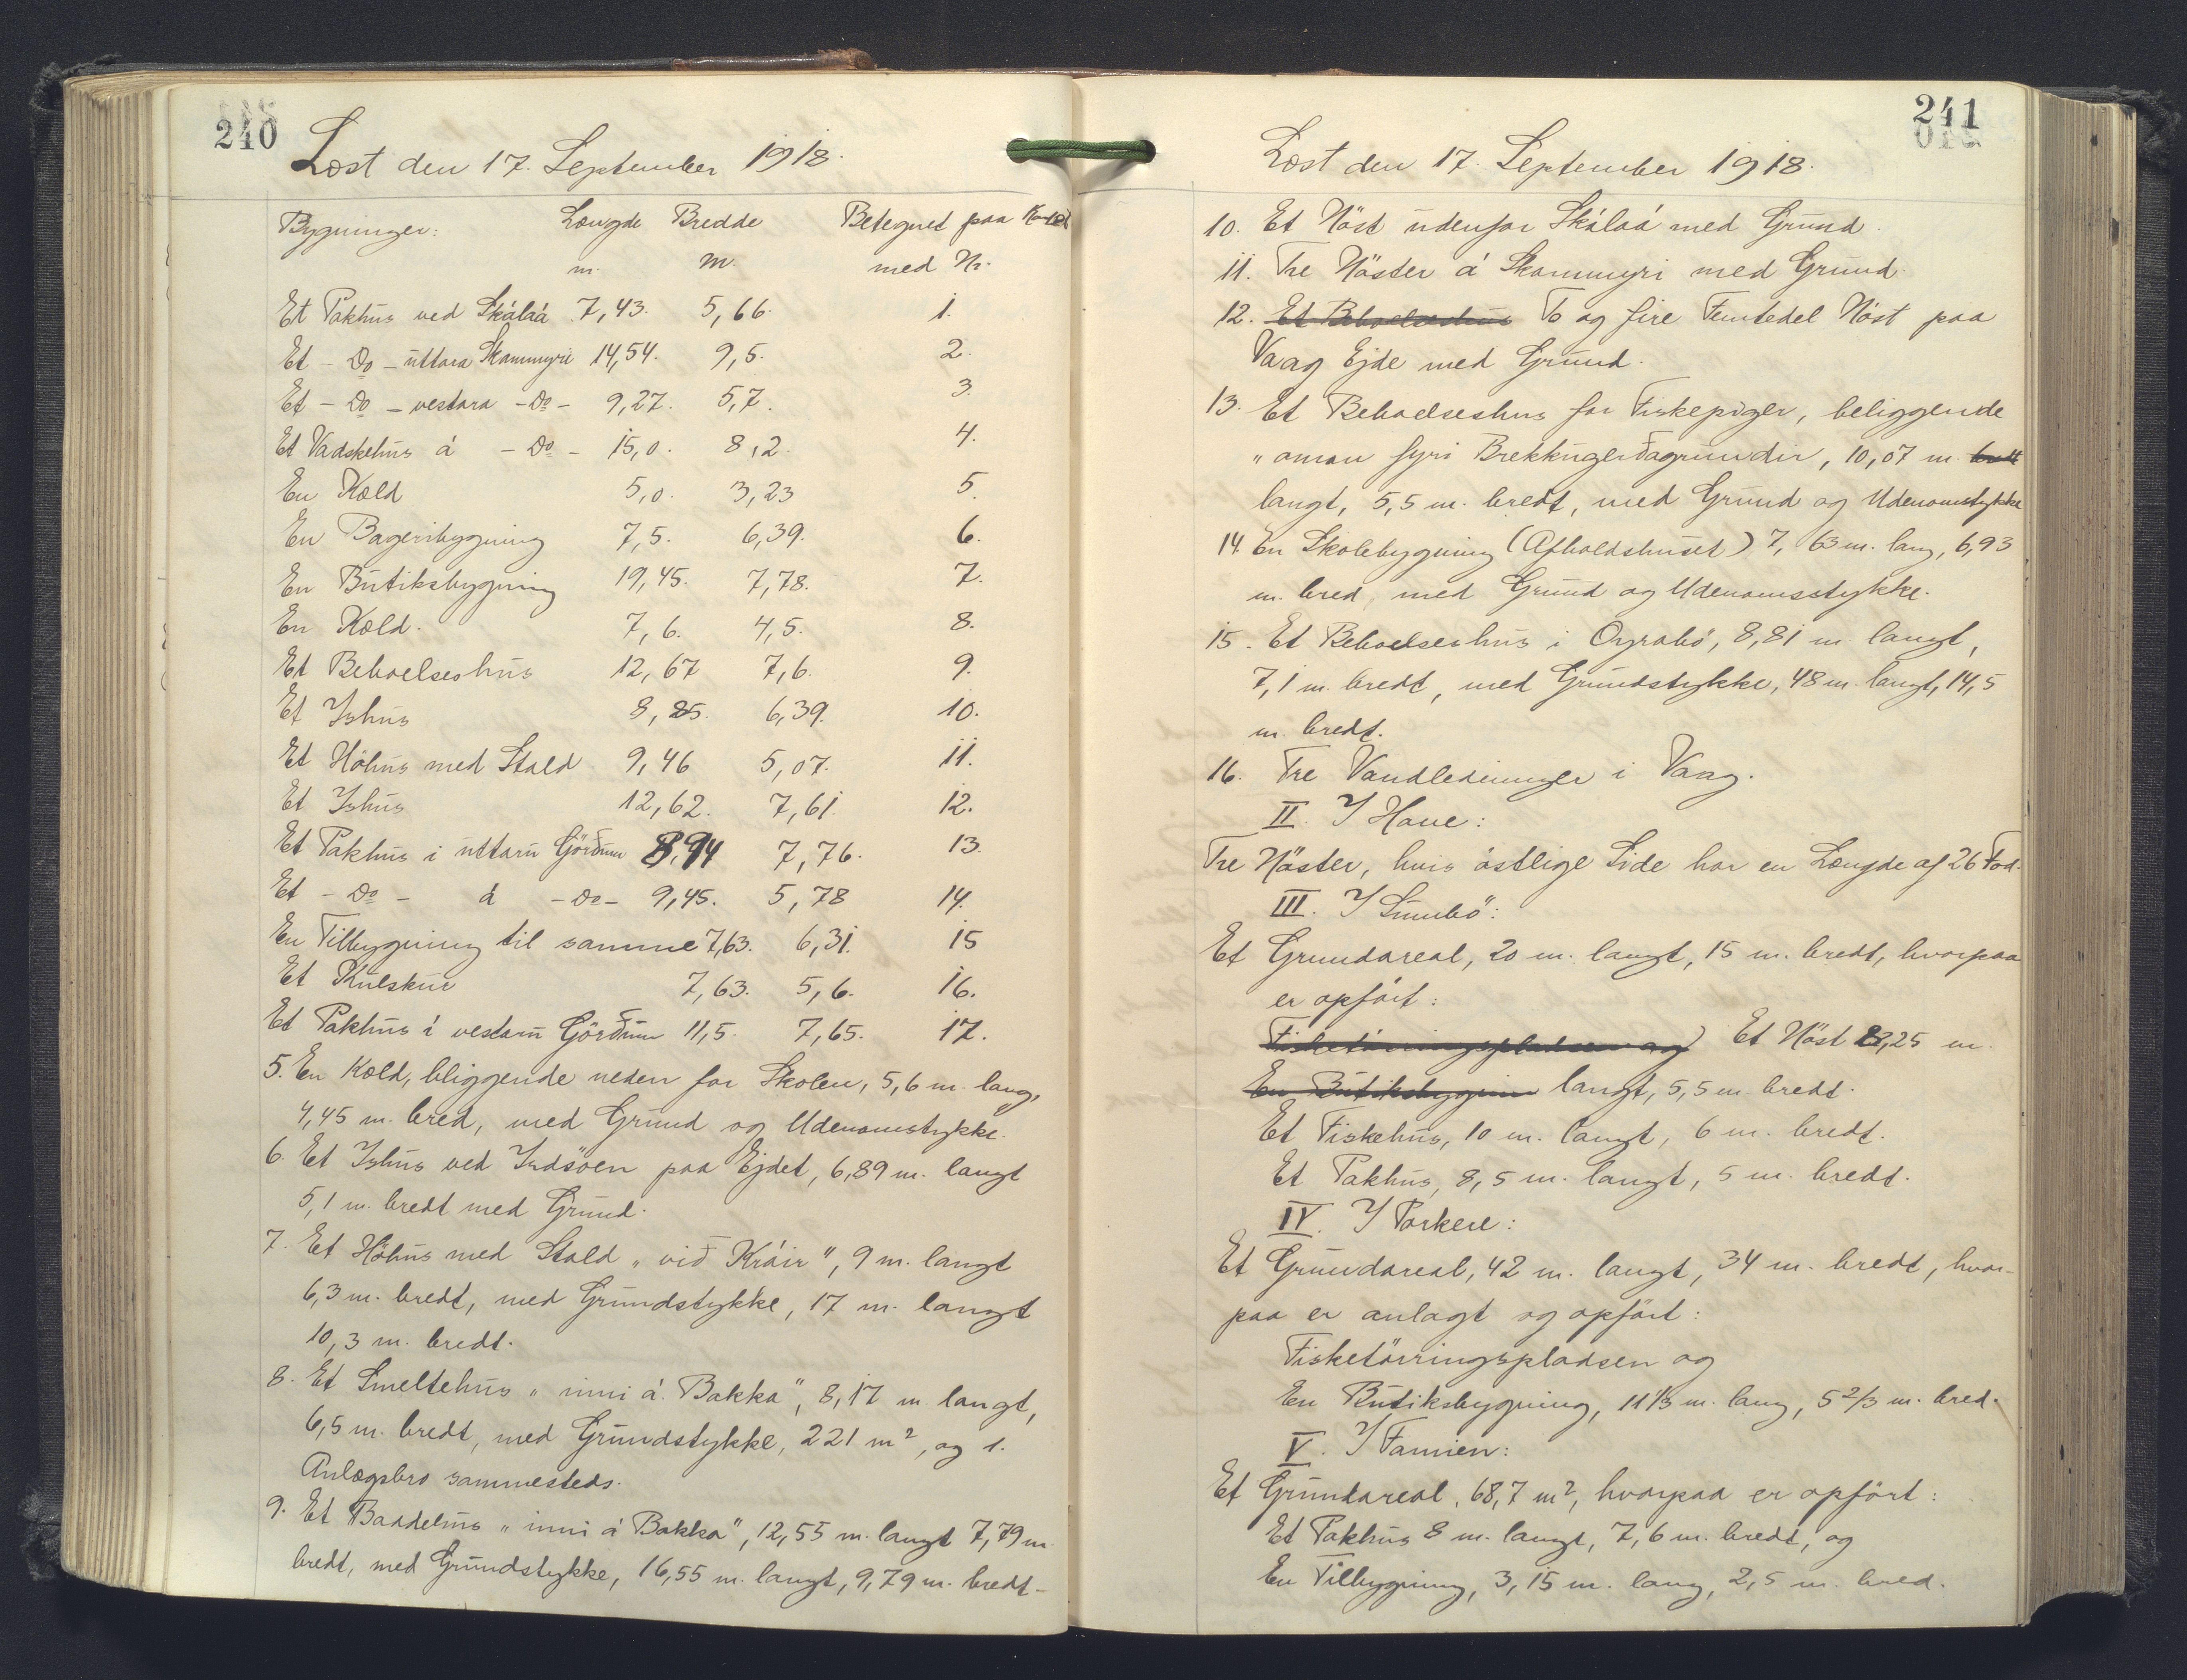 240
Læst den 17. September 1918.
Bygninger: Længde Bredde Betegnet paa
m. m. med Nr.
Et Pakhus ved Skálaá 7,43. 5,66. 1.
Et - Do - uttara Skammyri 14,54. 9,5. 2.
Et - Do - vestara - Do - 9,27. 5,7. 3.
Et Vadskehus á - Do - 15,0. 8,2. 4.
En Kæld 5,0. 3,23 5.
En Bageribygning 7,5. 6,39. 6.
En Butiksbygning 19,45. 7,78. 7.
En Kæld. 7,6. 4,5. 8.
Et Beboelseshus 12,67 7,6. 9.
Et Ishus 8,85. 6,39. 10.
Et Höhus med Stald 9,46 5,07. 11.
Et Ishus 12,62. 7,61. 12.
Et Pakhus i uttaru Görðum 8,94 7,76. 13.
Et - Do - á - Do - 9,45. 5,78 14.
En Tilbygning til samme 7,63. 6,31. 15
Et Kulskur 7,63. 5,6. 16.
Et Pakhus i vestaru Görðum 11,5. 7,65. 17.
5. En Kæld, bliggende neden for Skolen, 5,6 m. lang,
4,45 m. bred, med Grund og Udenomstykke.
6. Et Ishus ved Indsöen paa Ejdet, 6,89 m. langt
5,1 m. bredt med Grund.
7. Et Höhus med Stald „við Kráir", 9 m. langt
6,3 m. bredt, med Grundstykke, 17 m. langt
10,3 m. bredt.
8. Et Smeltehus „inni á Bakka", 8,17 m. langt,
6,5 m. bredt, med Grundstykke, 221 m², og 1.
Anlægsbro sammesteds.
9. Et Baadehus „inni á Bakka", 12,55 m. langt 7,79 m.
bredt, med Grundstykke, 16,55 m. langt, 9,79 m. bredt-
241
Læst den 17. September 1918.
10. Et Nöst udenfor Skálaá med Grund.
11. Tre Nöster á Skammyri med Grund.
12. Et Beboelseshus To og fire Femtedel Nöst paa
Vaag Ejde med Grund.
13. Et Beboelseshus for Fiskepiger, beliggende
„oman fyri Brekkugerðagrundir, 10,07 m. bredt
langt, 5,5 m. bredt, med Grund og Udenomstykke
14. En Skolebygning (Afholdshuset) 7,63 m. lang, 6,93
m. bred, med Grund og Udenomsstykke.
15. Et Beboelseshus i Oyrabö, 8,81 m. langt,
7,1 m. bredt, med Grundstykke, 48 m. langt, 14,5
m. bredt.
16. Tre Vandledninger i Vaag.
II. I Hove:
Tre Nöster, hvis östlige Side har en Længde af 26 Fod.
III. I Sumbö:
Et Grundareal, 20 m. langt, 15 m. bredt, hvorpaa
er opfört:
Fisketörringspladsen og Et Nöst 8,25 m.
En Butiksbygnin langt, 5,5 m. bredt.
Et Fiskehus, 10 m. langt, 6 m. bredt.
Et Pakhus, 8,5 m. langt, 5 m. bredt.
IV. I Porkere:
Et Grundareal, 42 m. langt, 34 m. bredt, hvor-
paa er anlagt og opfört:
Fisketörringspladsen og
En Butiksbygning, 11 1/3 m. lang, 5 2/3 m. bred.
V. I Famien:
Et Grundareal, 68,7 m², hvorpaa er opfört:
Et Pakhus 8 m. langt, 7,6 m. bredt, og
En Tilbygning, 3,15 m. lang, 2,5 m. bred.